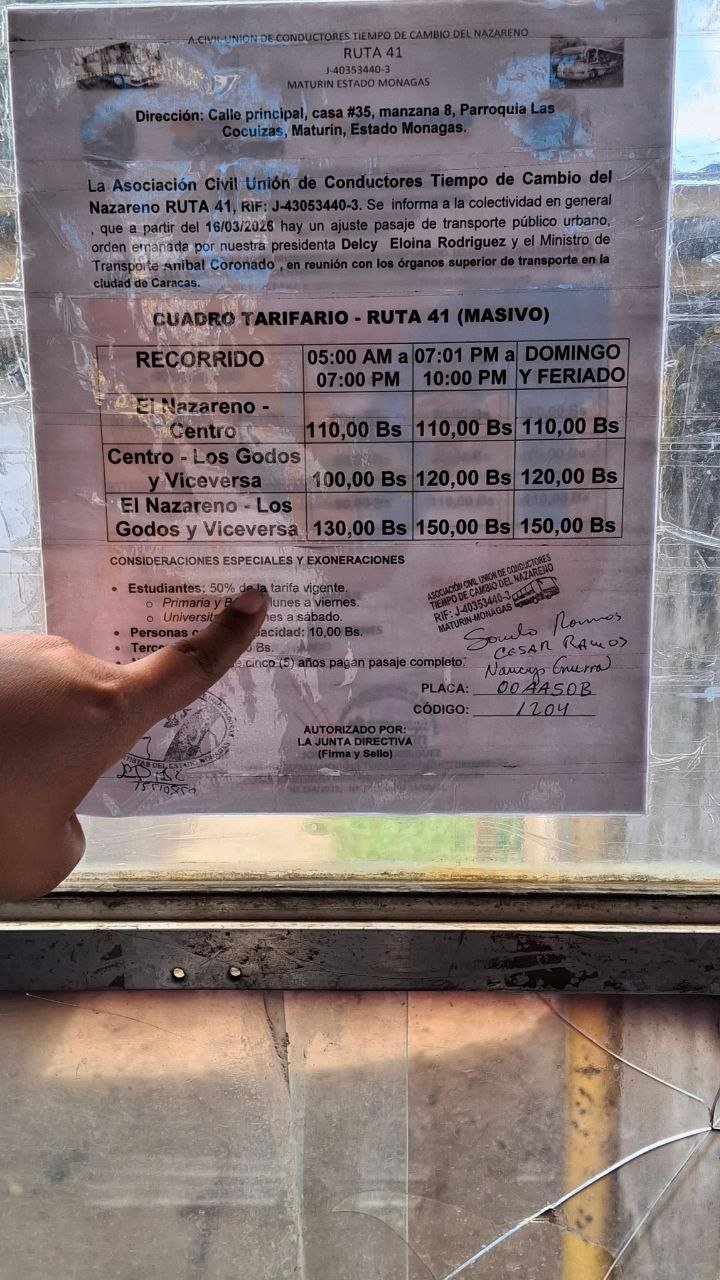 A.CIVIL UNION DE CONDUCTORES TIEMPO DE CAMBIO DEL NAZARENO
RUTA 41
J-40353440-3
MATURIN ESTADO MONAGAS
Dirección: Calle principal, casa #35, manzana 8, Parroquia Las
Cocuizas, Maturín, Estado Monagas.
La Asociación Civil Unión de Conductores Tiempo de Cambio del
Nazareno RUTA 41, RIF: J-43053440-3. Se informa a la colectividad en general
, que a partir del 16/03/2026 hay un ajuste pasaje de transporte público urbano,
orden emanada por nuestra presidenta Delcy Eloina Rodriguez y el Ministro de
Transporte Anibal Coronado , en reunión con los órganos superior de transporte en la
ciudad de Caracas.
CUADRO TARIFARIO - RUTA 41 (MASIVO)
RECORRIDO 05:00 AM a 07:00 PM 07:01 PM a 10:00 PM DOMINGO Y FERIADO
El Nazareno - Centro 110,00 Bs 110,00 Bs 110,00 Bs
Centro - Los Godos y Viceversa 100,00 Bs 120,00 Bs 120,00 Bs
El Nazareno - Los Godos y Viceversa 130,00 Bs 150,00 Bs 150,00 Bs
CONSIDERACIONES ESPECIALES Y EXONERACIONES
Estudiantes: 50% de la tarifa vigente.
Primaria y lunes a viernes.
a sábado.
Personas 10,00 Bs.
Bs.
cinco (5) años pagan pasaje completo.
ASOCIACIÓN CIVIL UNION DE CONDUCTORES
TIEMPO DE CAMBIO DEL NAZARENO
RIF: J-40353440-3
MATURIN-MONAGAS
CESAR RAMOS
Nancys Guerra
PLACA: 00AA50B
CÓDIGO: 1204
AUTORIZADO POR:
LA JUNTA DIRECTIVA
(Firma y Sello)